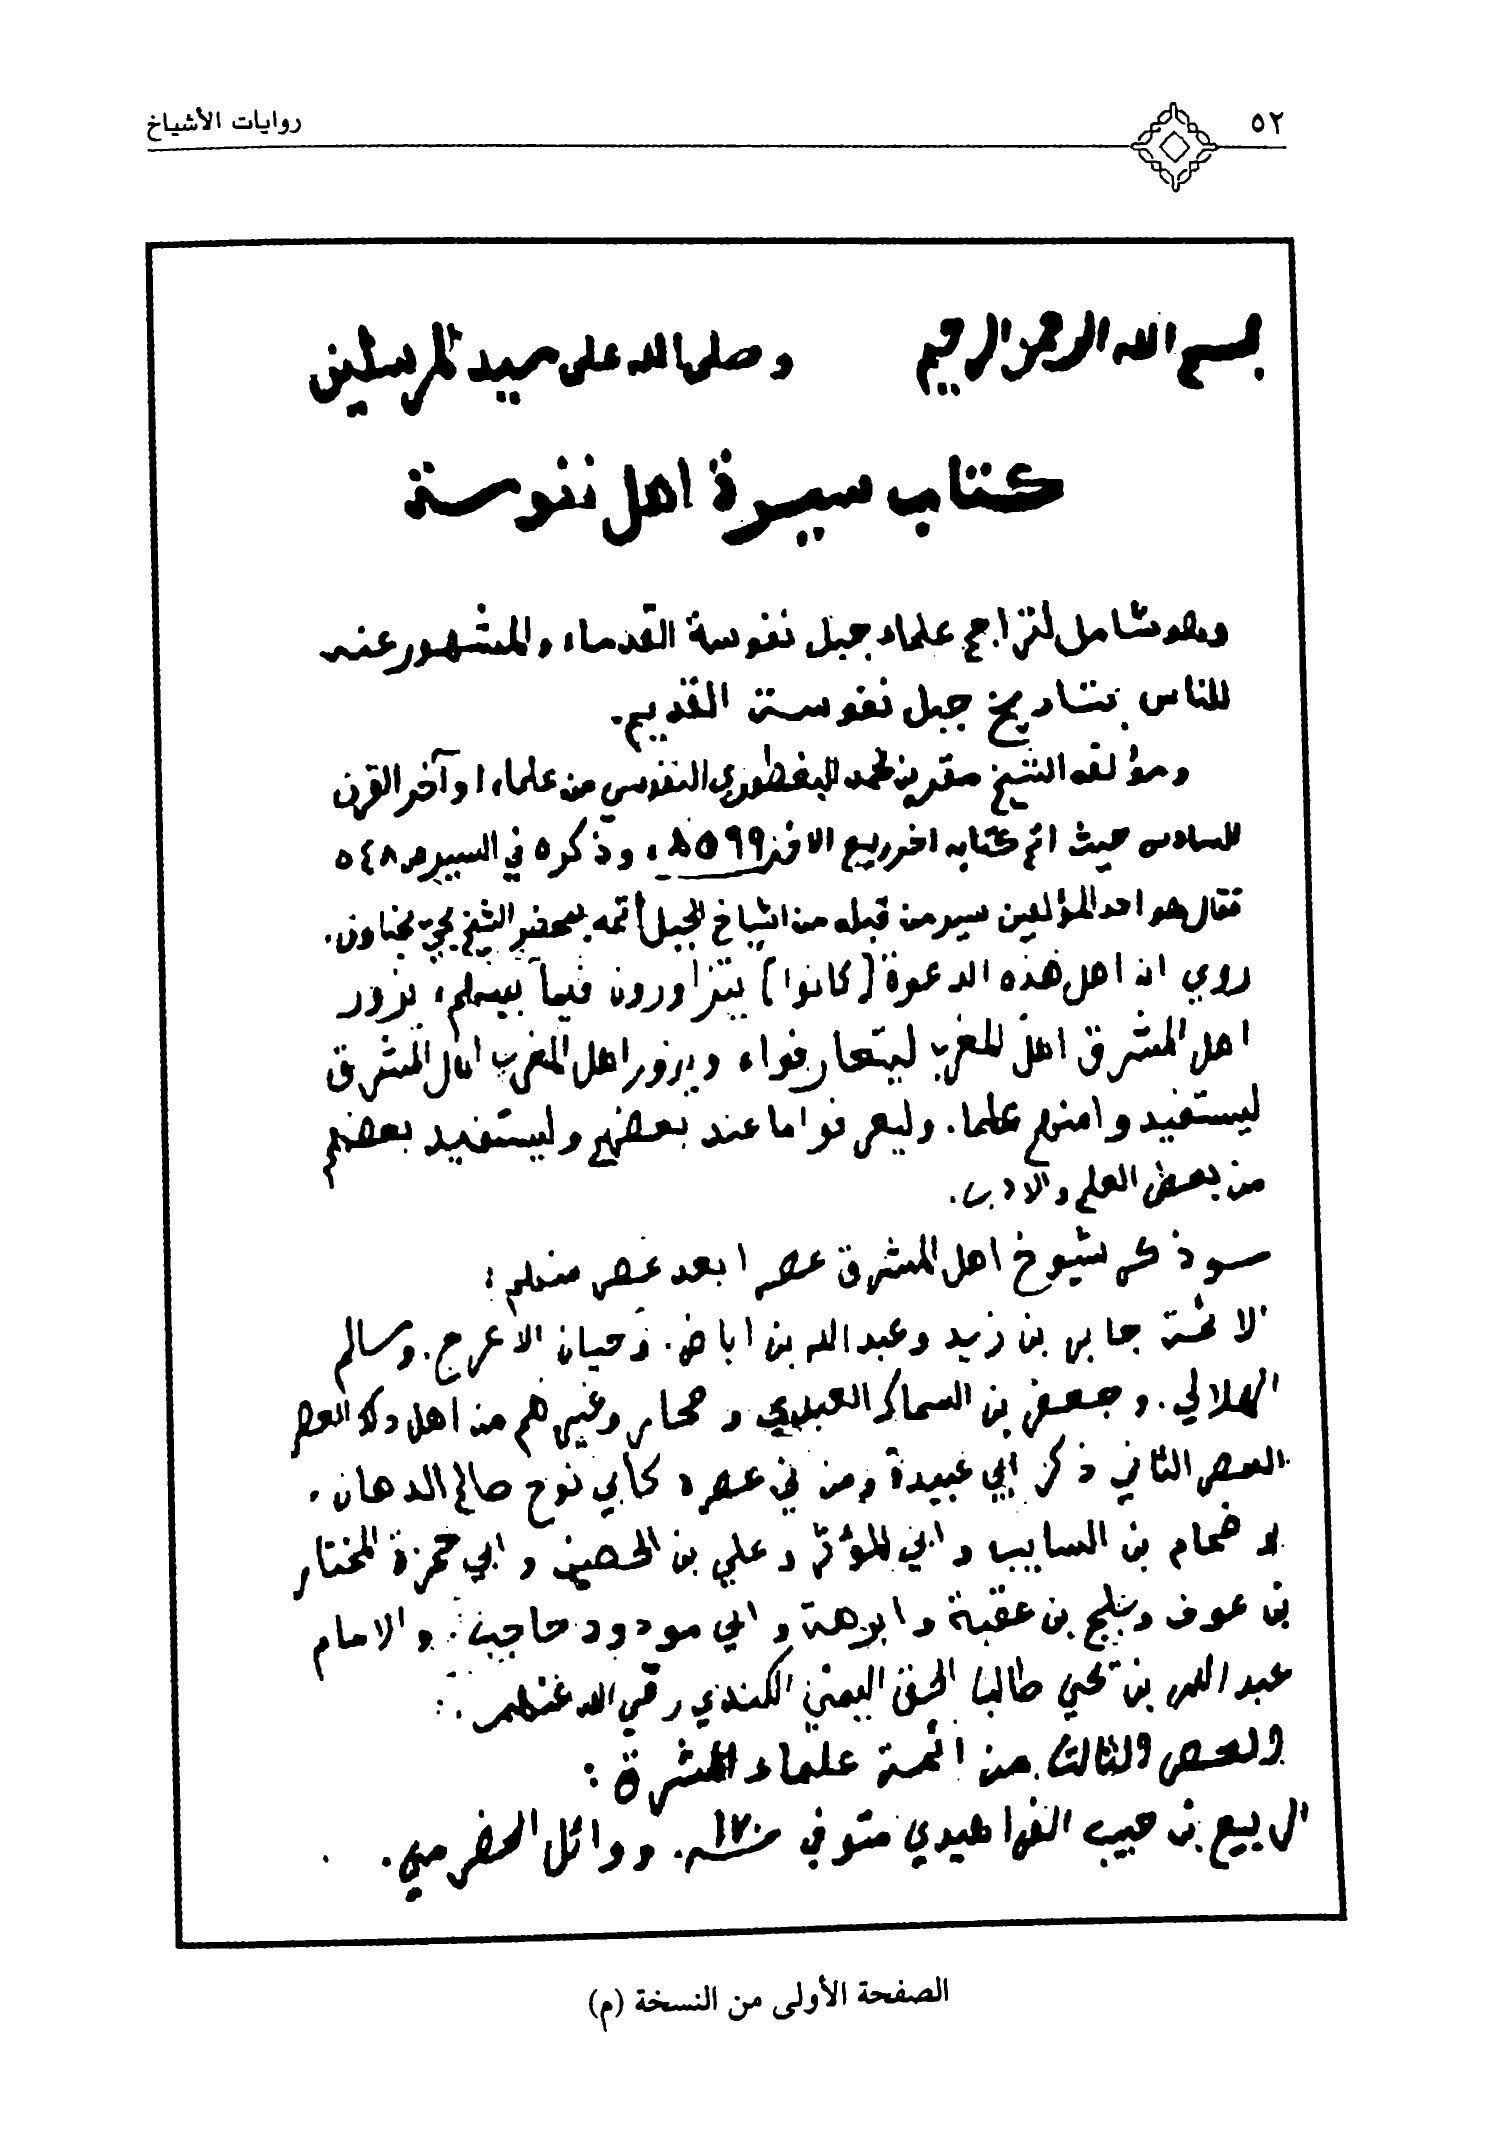 ٥٢ روايات الأشياخ
بسم الله الرحمن الرحيم وصلى الله على سيد المرسلين
كتاب سيرة اهل نفوسة
وهو شامل لتراجم علماء جبل نفوسة القدماء والمشهور عند
الناس بتاريخ جبل نفوسة القديم.
ومؤلفه الشيخ مقرين محمد البغطوري النفوسي من علماء اوآخر القرن
السادس حيث اتم كتابه اخر ربيع الاخر ٥٩٩ﻫ، وذكره في السير ص ٥٤٨
فقال هو احد المؤلفين سير من قبله من اشياخ الجبل أتمه بمحضر الشيخ
روي ان اهل هذه الدعوة [كانوا] يتزاورون فيما بينهم، يزور
اهل المشرق اهل المغرب ليتعارفوا، ويزور اهل المغرب اهل المشرق
ليستفيدوا منهم علما. وليعرفوا ما عند بعضهم وليستفيد بعضهم
من بعض العلم والادب.
وذكر شيوخ اهل المشرق عصرا بعد عصر منهم :
الائمة جابر بن زيد وعبد الله بن اباض. وحيان الاعرج. وسالم
الهلالي. وجعفر بن السماك العبدي وصحار وغيرهم من اهل ذلك العصر
العصر الثاني ذكر ابي عبيدة ومن في عصره كأبي نوح صالح الدهان.
وضمام بن السايب وابي المؤثر وعلي بن الحصين وابي حمزة المختار
بن عوف وبلج بن عقبة وابرهة وابي مودود حاجب. والامام
عبد الله بن يحي طالب الحق اليمني الكندي رضي الله عنهم.
والعصر الثالث من ائمة علماء المشرق :
الربيع بن حبيب الفراهيدي متوفي سنة ١٧٠. ووائل الحضرمي.
الصفحة الأولى من النسخة (م)